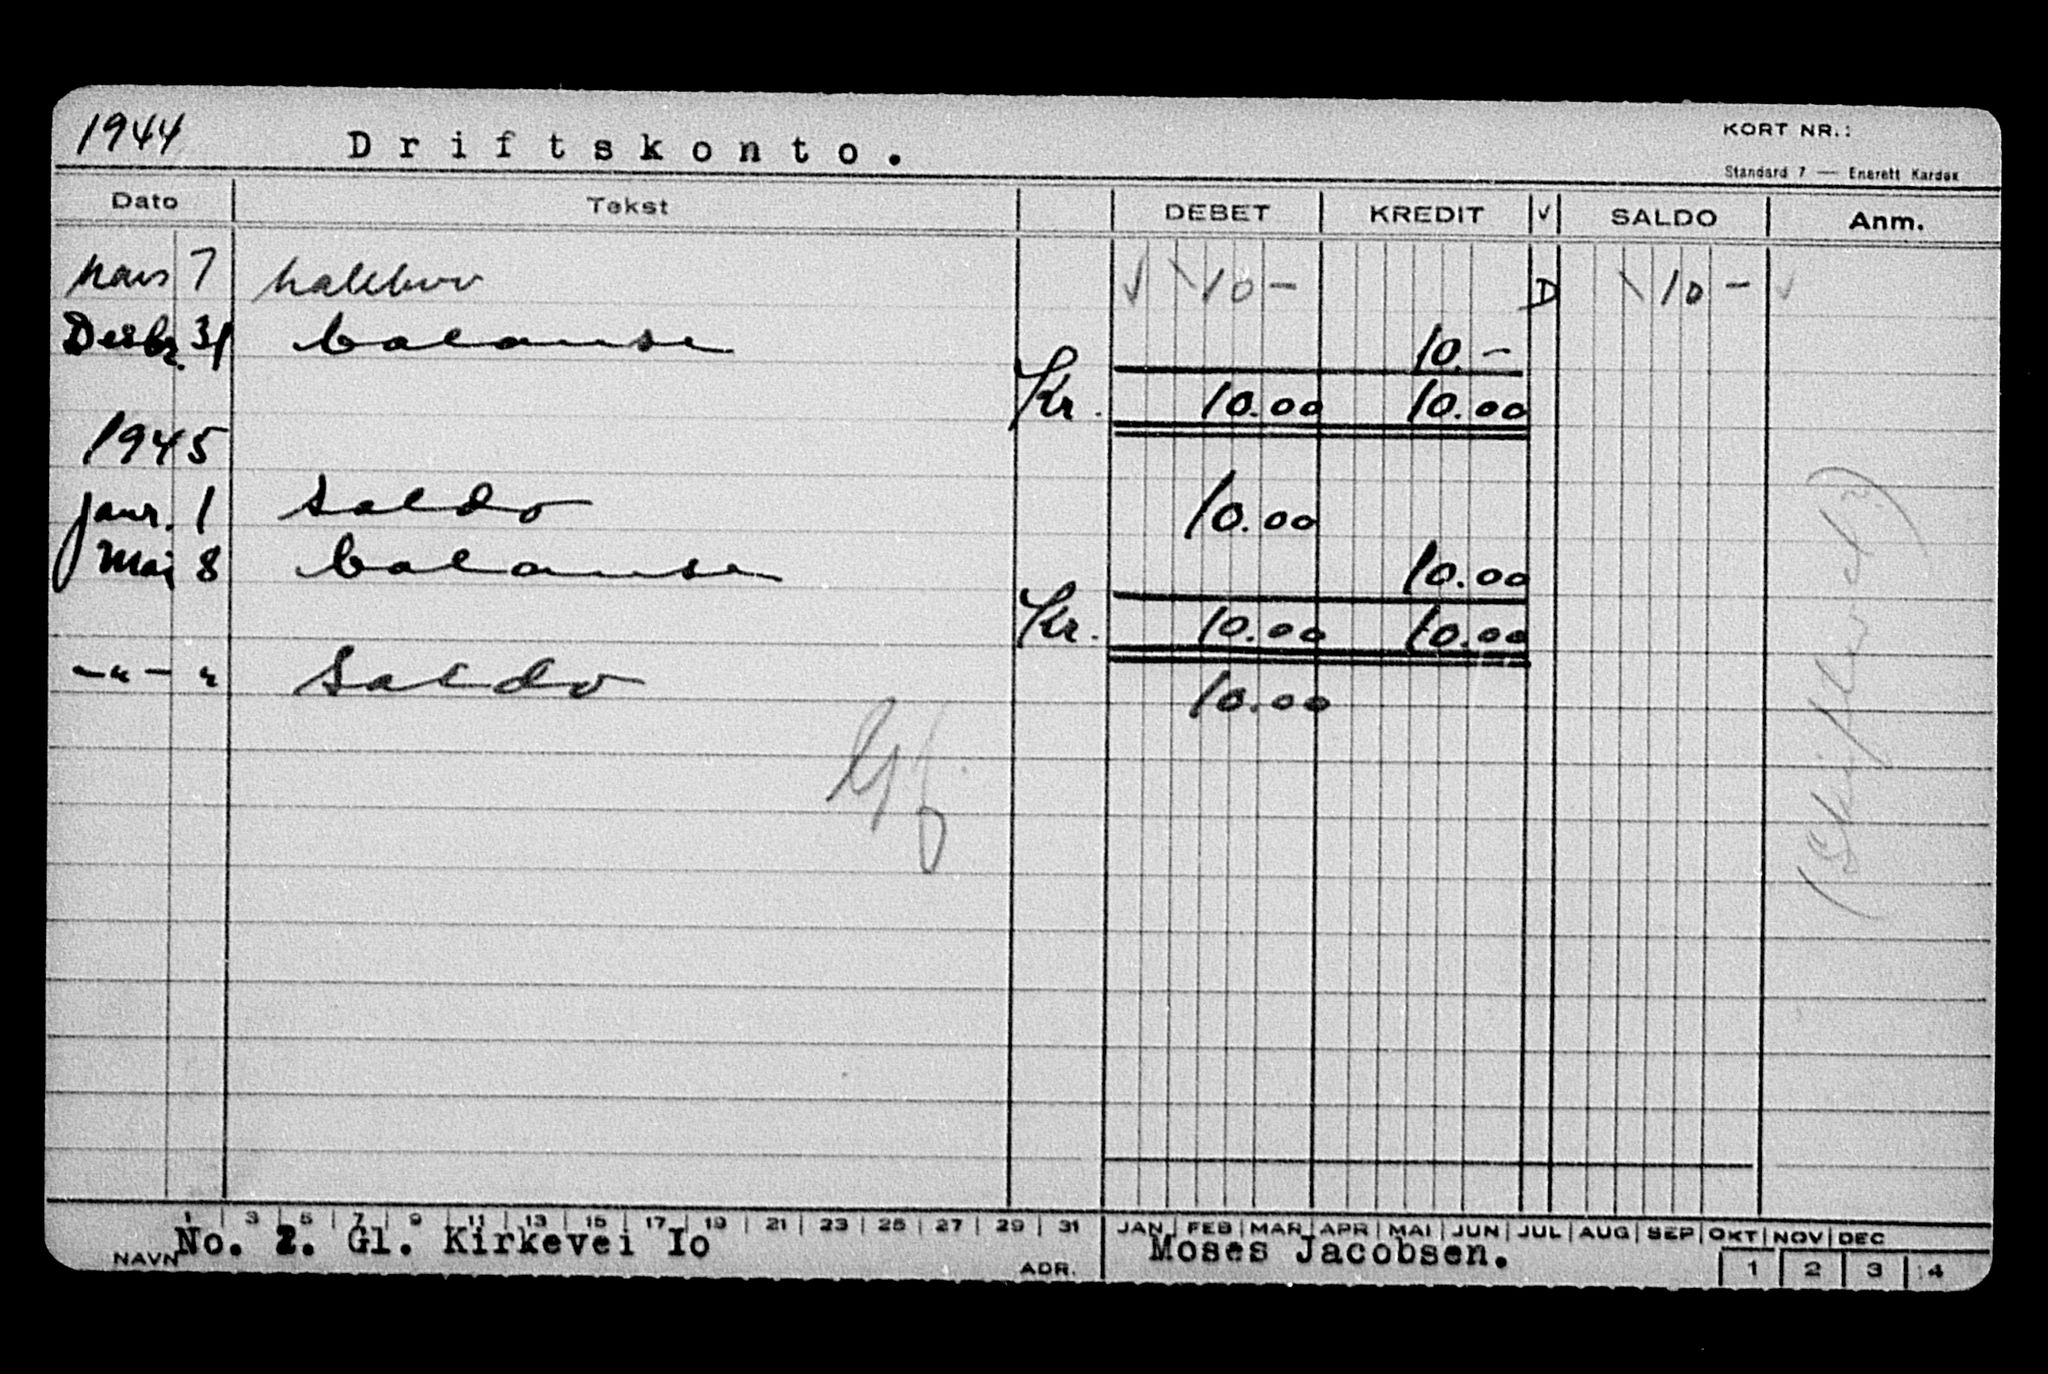 1944 Driftskonto. KORT NR.:
Standard 7 — Enerett Kardex
Dato Tekst DEBET KREDIT √ SALDO Anm.
Mars 7 √ 10 – D 10 – √
Desbr. 31 balanse 10.–
Kr. 10.00 10.00
1945
Janr. 1 Saldo 10.00
Mai 8 balanse 10.00
Kr. 10.00 10.00
–"– " Saldo 10.00
1 3 5 7 9 11 13 15 17 19 21 23 25 27 29 31 JAN FEB MAR APR MAI JUN JUL AUG SEP OKT NOV DEC
NAVN No. 2. Gl. Kirkevei Io ADR. Moses Jacobsen. 1 2 3 4